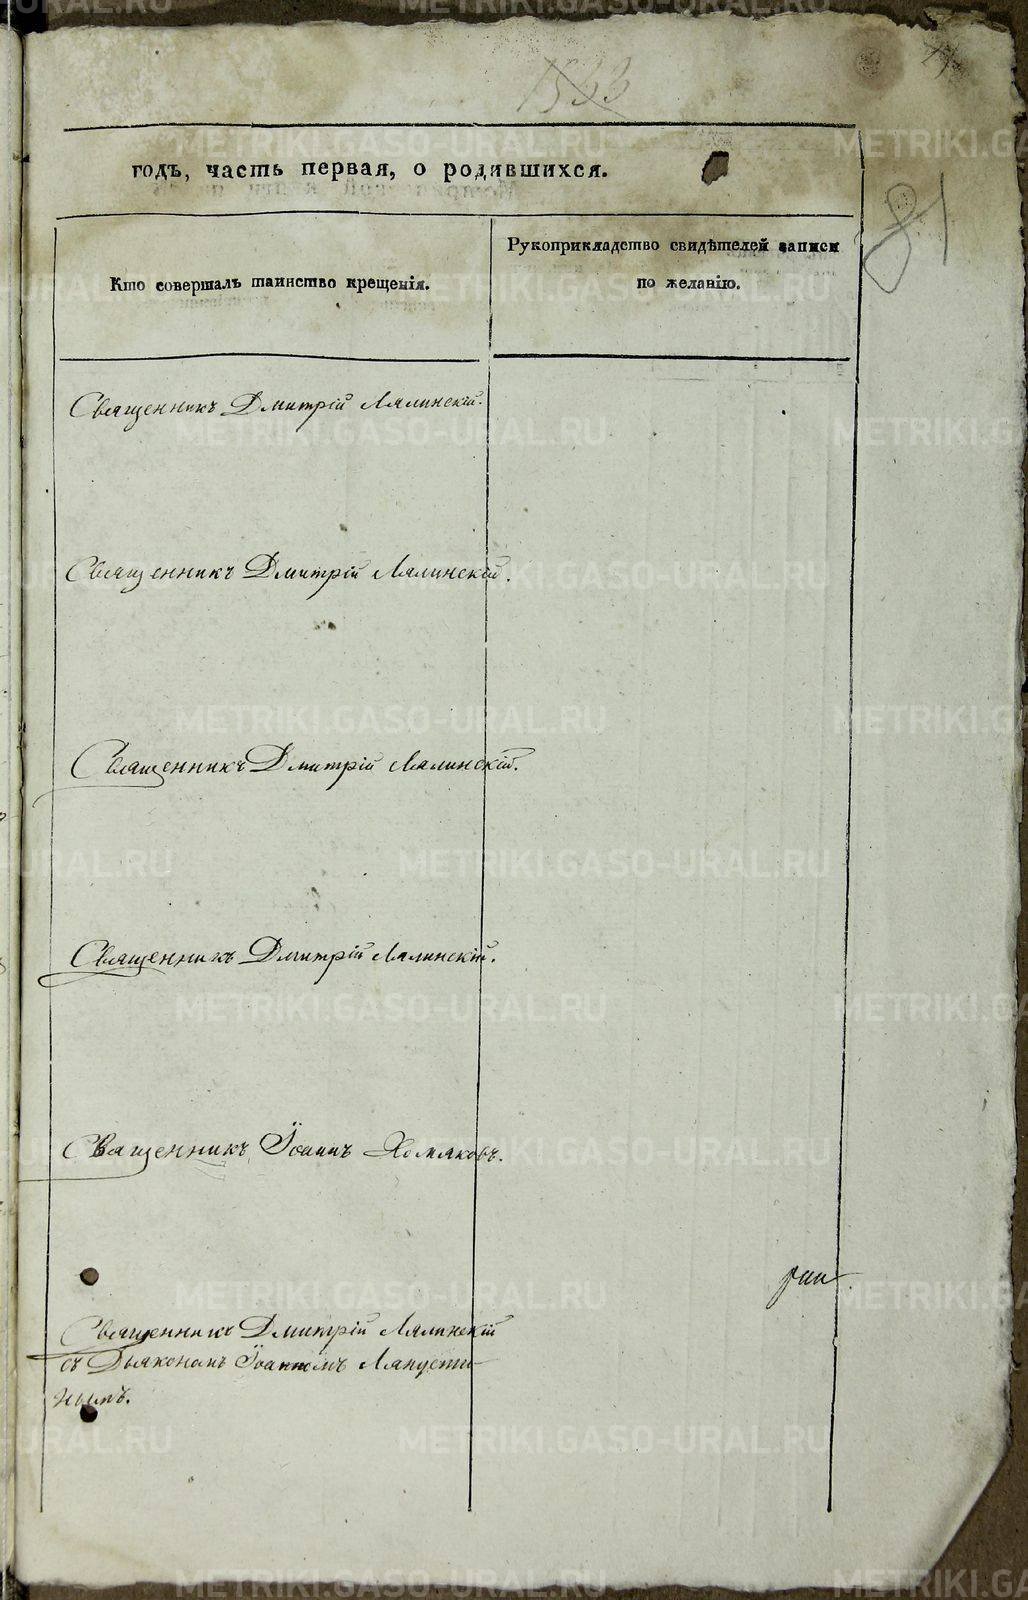 1533
годъ, часть первая, о родившихся.
81
Кто совершалъ таинство крещенія.
Рукоприкладство свидѣтелей записи
по желанію.
Священникъ Дмитрій Лялинскій.
Священникъ Дмитрій Лялинскій.
Священникъ Дмитрій Лялинскій.
Священникъ Дмитрій Лялинскій.
Священникъ Іоаннъ Хомяковъ.
Священникъ Дмитрій Лялинскій
съ Дьякономъ Іоанномъ Лапусти-
нымъ.
METRIKI.GASO-URAL.RU